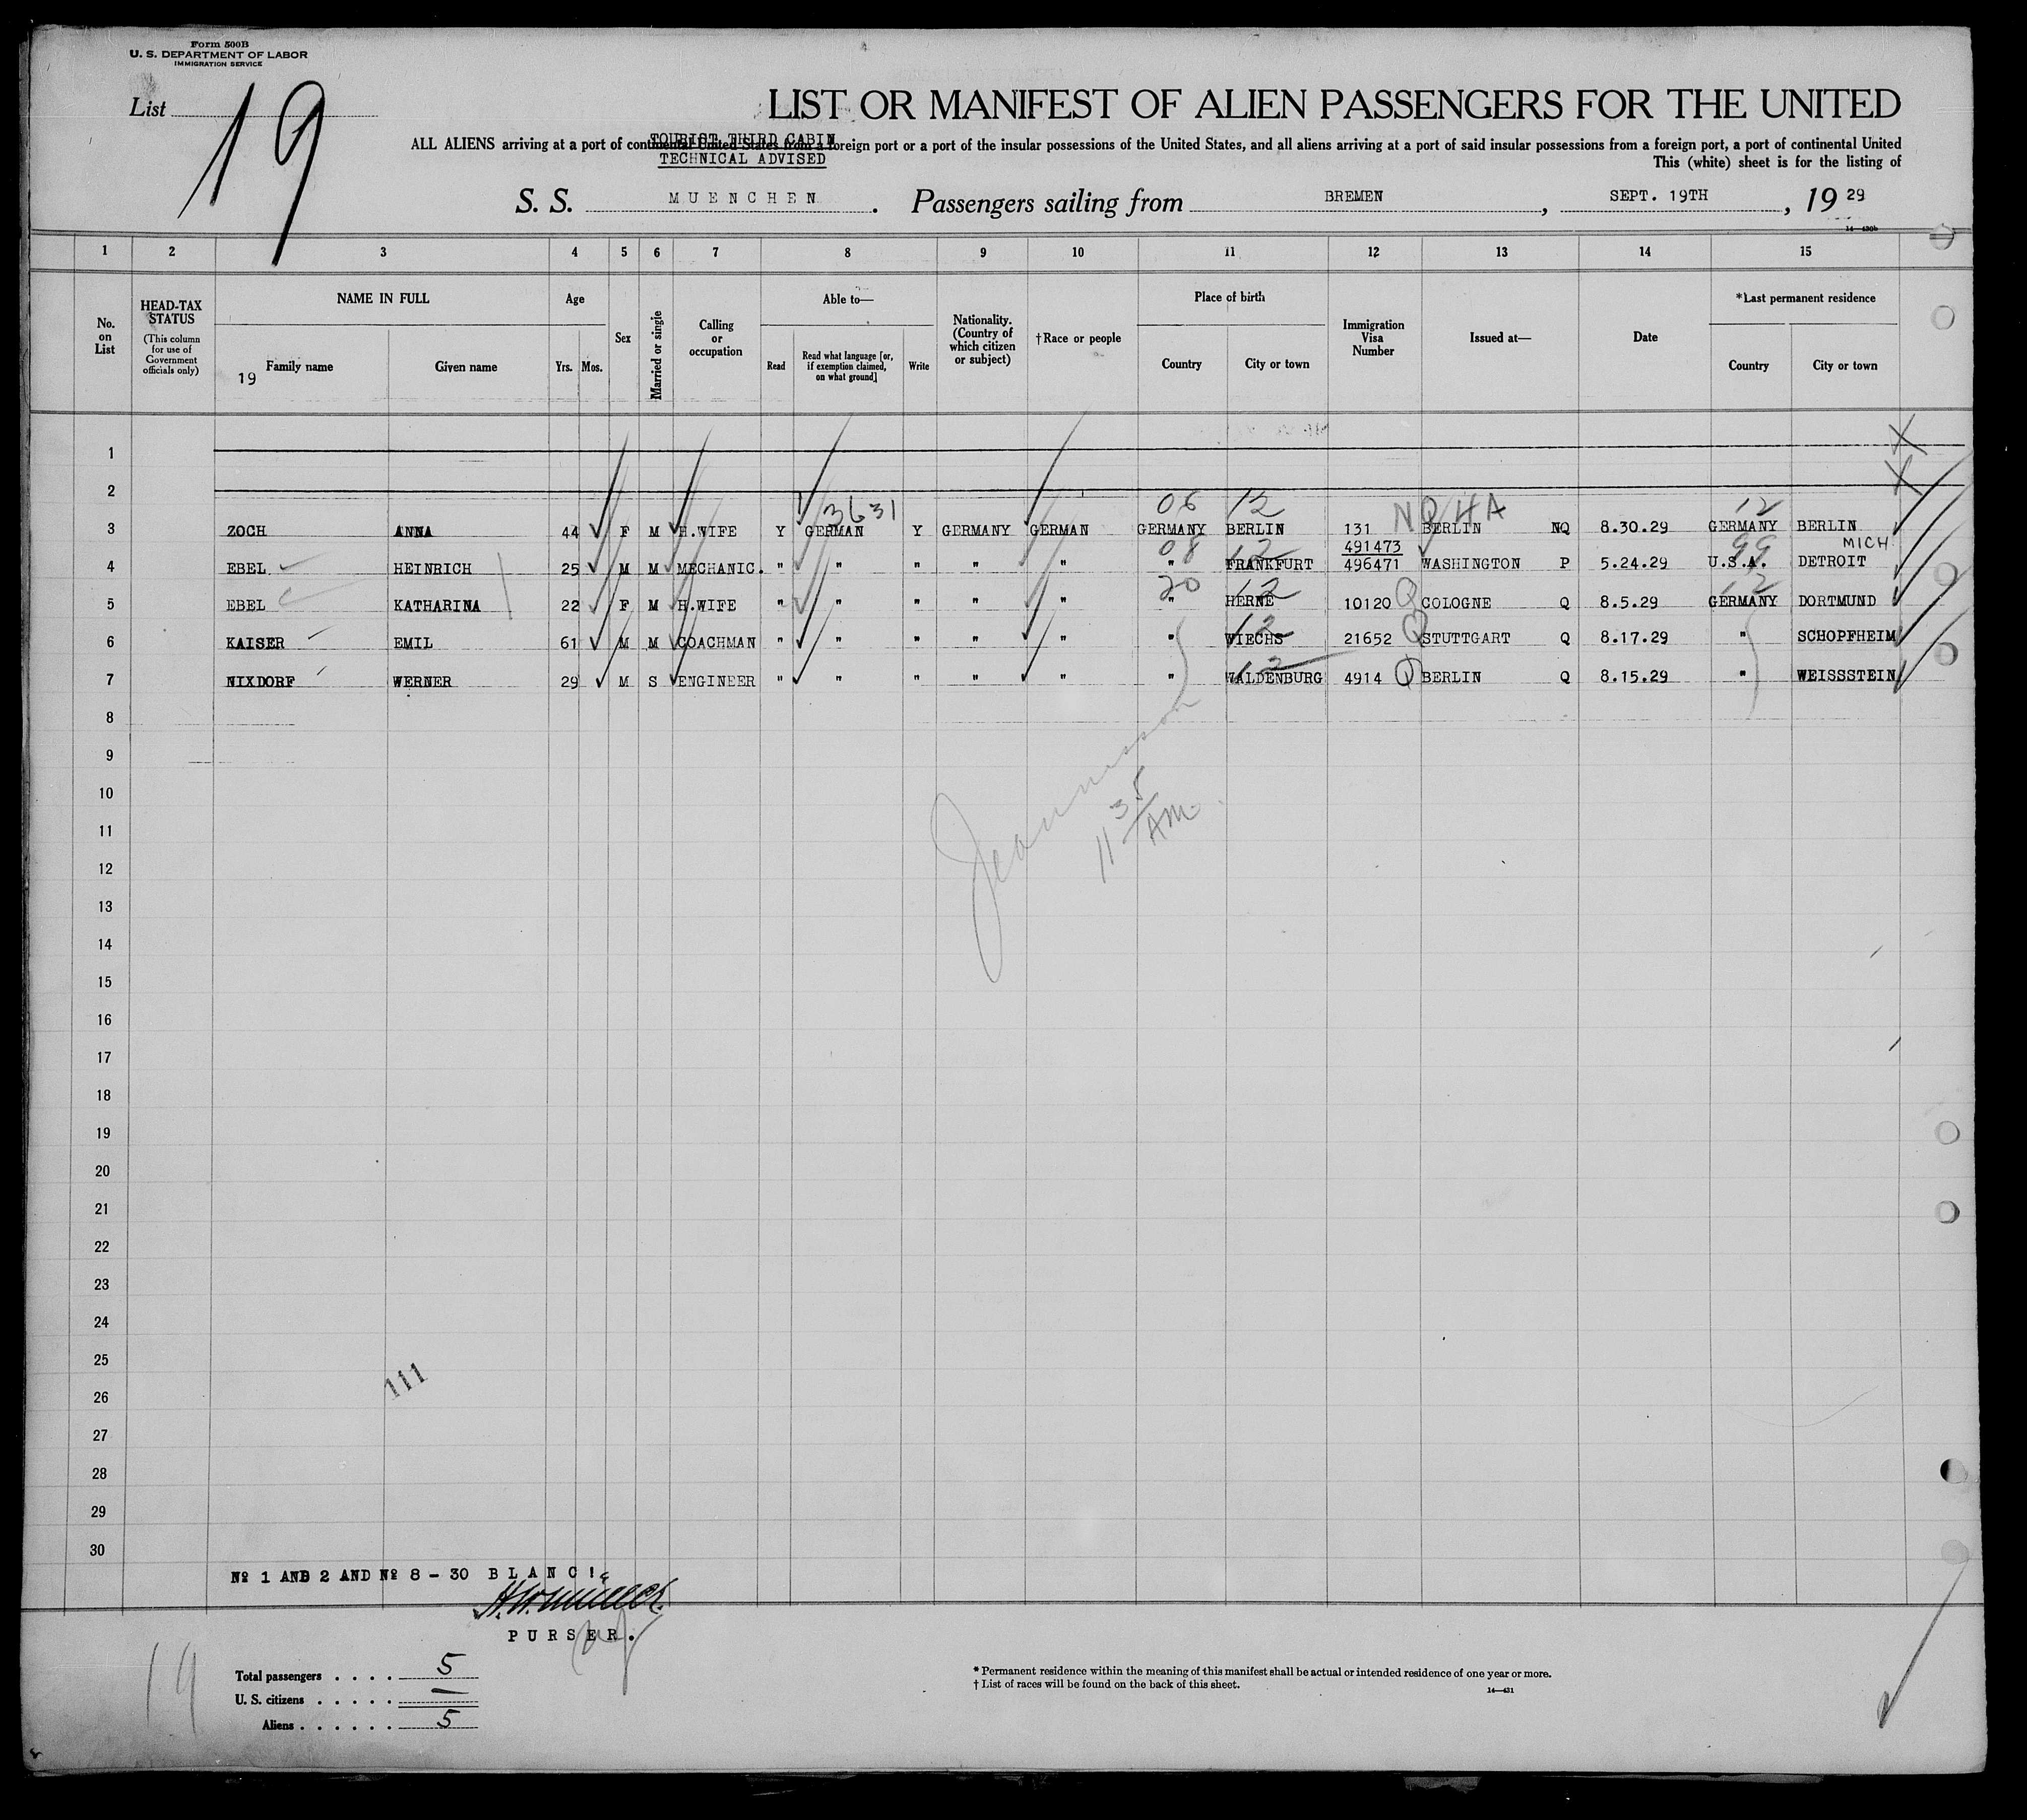 Form 500B
U. S. DEPARTMENT OF LABOR
IMMIGRATION SERVICE
List 19
LIST OR MANIFEST OF ALIEN PASSENGERS FOR THE UNITED
TOURIST THIRD CABIN
ALL ALIENS arriving at a port of continental United States from a foreign port or a port of the insular possessions of the United States, and all aliens arriving at a port of said insular possessions from a foreign port, a port of continental United
TECHNICAL ADVISED
This (white) sheet is for the listing of
S. S. MUENCHEN. Passengers sailing from BREMEN, SEPT. 19TH, 1929
14—430b
1 2 3 4 5 6 7 8 9 10 11 12 13 14 15
No. on List
HEAD-TAX STATUS
(This column for use of Government officials only)
NAME IN FULL
19 Family name
Given name
Age
Yrs. Mos.
Sex
Married or single
Calling or occupation
Able to—
Read
Read what language [or, if exemption claimed, on what ground]
Write
Nationality. (Country of which citizen or subject)
†Race or people
Place of birth
Country
City or town
Immigration Visa Number
Issued at—
Date
*Last permanent residence
Country
City or town
1 X
2 X
3631 06 12 NQ HA 12
3 ZOCH ANNA 44 F M H.WIFE Y GERMAN Y GERMANY GERMAN GERMANY BERLIN 131 BERLIN NQ 8.30.29 GERMANY BERLIN
08 12 491473 99 MICH
4 EBEL HEINRICH 25 M M MECHANIC. " " " " " " FRANKFURT 496471 WASHINGTON P 5.24.29 U.S.A. DETROIT
20 12 12
5 EBEL KATHARINA 22 F M H.WIFE " " " " " " HERNE 10120 Q COLOGNE Q 8.5.29 GERMANY DORTMUND
12
6 KAISER EMIL 61 M M COACHMAN " " " " " " WIECHS 21652 Q STUTTGART Q 8.17.29 " SCHOPFHEIM
12
7 NIXDORF WERNER 29 M S ENGINEER " " " " " " WALDENBURG 4914 Q BERLIN Q 8.15.29 " WEISSSTEIN
8
9
10
11 35/AM
11
12
13
14
15
16
17
18
19
20
21
22
23
24
25
111
26
27
28
29
30
№ 1 AND 2 AND № 8 - 30 BLANC!
PURSER.
19
Total passengers . . . . 5
U. S. citizens . . . . . —
Aliens . . . . . . 5
* Permanent residence within the meaning of this manifest shall be actual or intended residence of one year or more.
† List of races will be found on the back of this sheet.
14—431